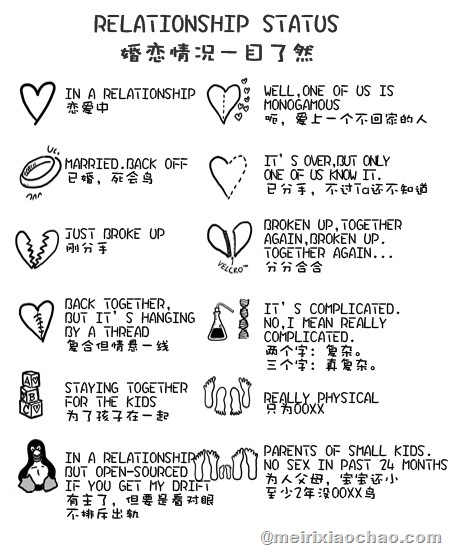 RELATIONSHIP STATUS
婚恋情况一目了然
IN A RELATIONSHIP
恋爱中
WELL,ONE OF US IS
MONOGAMOUS
呃，爱上一个不回家的人
MARRIED.BACK OFF
已婚，死会鸟
IT'S OVER,BUT ONLY
ONE OF US KNOW IT.
已分手，不过Ta还不知道
JUST BROKE UP
刚分手
VELCRO™
BROKEN UP,TOGETHER
AGAIN,BROKEN UP.
TOGETHER AGAIN...
分分合合
BACK TOGETHER,
BUT IT'S HANGING
BY A THREAD
复合但情悬一线
IT'S COMPLICATED.
NO,I MEAN REALLY
COMPLICATED.
两个字：复杂。
三个字：真复杂。
A
B
C
STAYING TOGETHER
FOR THE KIDS
为了孩子在一起
REALLY PHYSICAL
只为OOXX
IN A RELATIONSHIP
BUT OPEN-SOURCED
IF YOU GET MY DRIFT
有主了，但要是看对眼
不排斥出轨
PARENTS OF SMALL KIDS.
NO SEX IN PAST 24 MONTHS
为人父母，宝宝还小
至少2年没OOXX鸟
@meirixiaochao.com